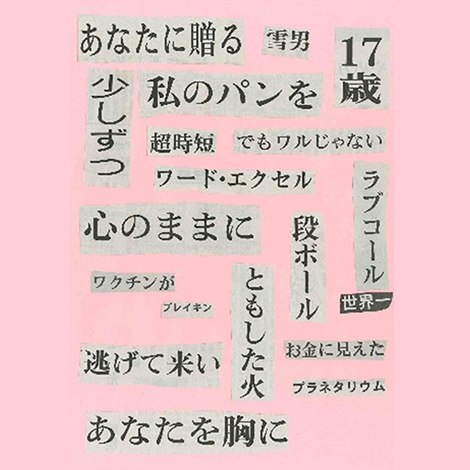 あなたに贈る
雪男
17歳
少しずつ
私のパンを
超時短
でもワルじゃない
ワード・エクセル
ラブコール
心のままに
段ボール
世界一
ワクチンが
ブレイキン
ともした火
逃げて来い
お金に見えた
プラネタリウム
あなたを胸に